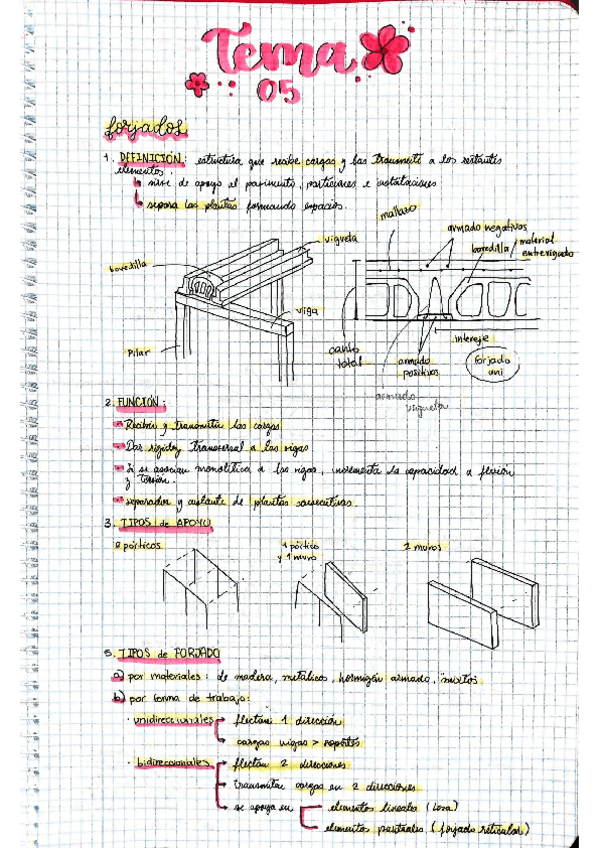 Tema
05
forjados
1. DEFINICIÓN: estructura que recibe cargas y las transmite a los restantes
elementos.
sirve de apoyo al pavimento, particiones e instalaciones
separa las plantas formando espacios.
mallazo
vigueta
armado negativos
bovedilla
material
entrevigado
bovedilla
viga
Pilar
canto
total
armado
positivos
intereje
forjado
uni
armado
vigueta
2. FUNCIÓN:
Recibir y transmitir las cargas
Dar rigidez transversal a las vigas
Si se asocian monolítica a las vigas, incrementa la capacidad a flexión
y torsión.
separador y aislante de plantas consecutivas.
3. TIPOS de APOYO
2 pórticos
1 pórtico
y 1 muro
2 muros
5. TIPOS de FORJADO
a) por materiales: de madera, metálicos, hormigón armado, mixtos
b) por forma de trabajo:
· unidireccionales flectan 1 dirección
cargas vigas > soportes
· bidireccionales flectan 2 direcciones
transmiten cargas en 2 direcciones
se apoya en elementos lineales (losa)
elementos puntuales (forjado reticular)